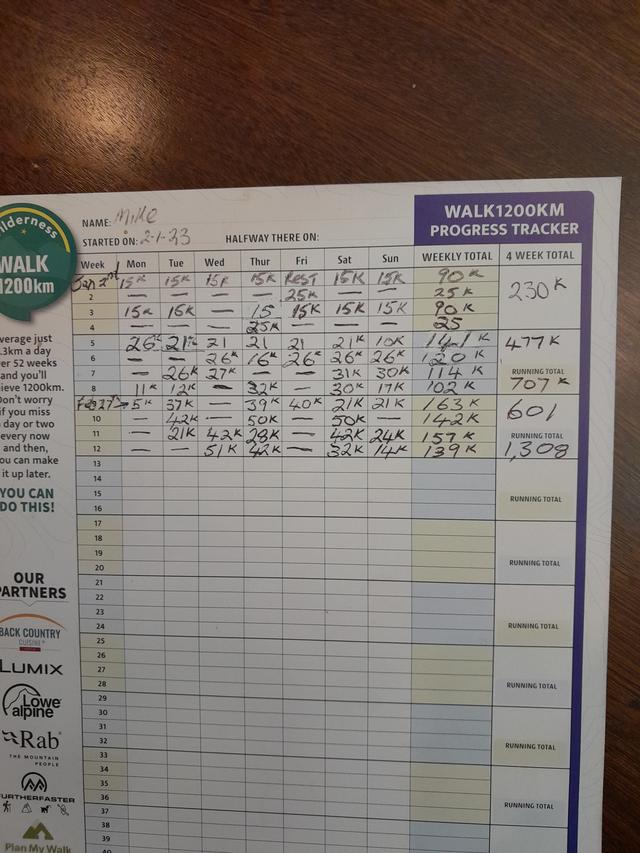 ilderness
WALK
1200km
NAME: Mike
STARTED ON: 2-1-23 HALFWAY THERE ON:
WALK1200KM
PROGRESS TRACKER
Week Mon Tue Wed Thur Fri Sat Sun WEEKLY TOTAL 4 WEEK TOTAL
Jan 2nd 15K 15K 15K 15K REST 15K 15K 90K
2 — — — — 25K — — 25K 230K
3 15K 15K — 15 15K 15K 15K 90K
4 — — — 25K — — — 25
5 26K 21K 21 21 21 21K 10K 141K 477K
6 — — 26K 16K 26K 26K 26K 120K
7 — 26K 27K — — 31K 30K 114K RUNNING TOTAL
8 11K 12K — 32K — 30K 17K 102K 707K
Feb 27 → 5K 37K — 39K 40K 21K 21K 163K 601
10 — 42K — 50K — 50K — 142K
11 — 21K 42K 28K — 42K 24K 157K RUNNING TOTAL
12 — — 51K 42K — 32K 14K 139K 1,308
13
14
15 RUNNING TOTAL
16
17
18
19 RUNNING TOTAL
20
21
22
23 RUNNING TOTAL
24
25
26
27 RUNNING TOTAL
28
29
30
31 RUNNING TOTAL
32
33
34
35 RUNNING TOTAL
36
37
38
39
40
verage just
.3km a day
er 52 weeks
and you'll
ieve 1200km.
Don't worry
if you miss
day or two
every now
and then,
ou can make
it up later.
YOU CAN
DO THIS!
OUR
PARTNERS
BACK COUNTRY
CUISINE
LUMIX
Lowe
alpine
Rab
THE MOUNTAIN
PEOPLE
FURTHERFASTER
Plan My Walk